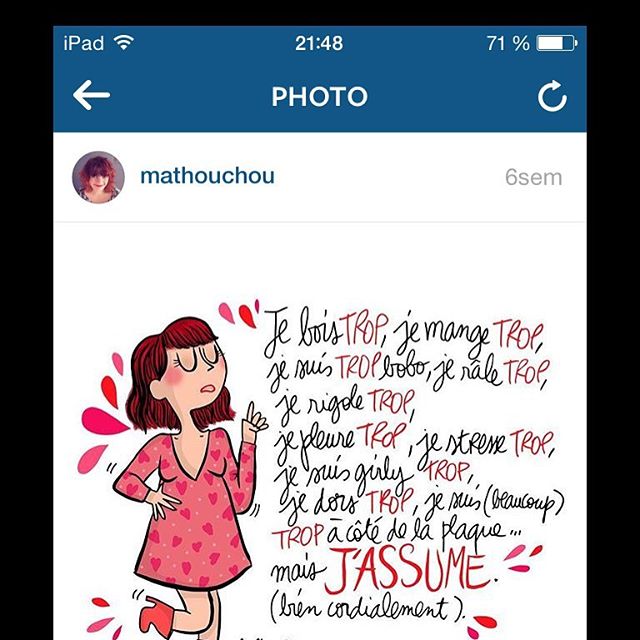 iPad 21:48 71 %
PHOTO
mathouchou 6sem
Je bois TROP, je mange TROP,
je suis TROP bobo, je râle TROP,
je rigole TROP,
je pleure TROP, je stresse TROP,
je suis girly TROP,
je dors TROP, je suis (beaucoup)
TROP à côté de la plaque...
mais J'ASSUME.
(bien cordialement).